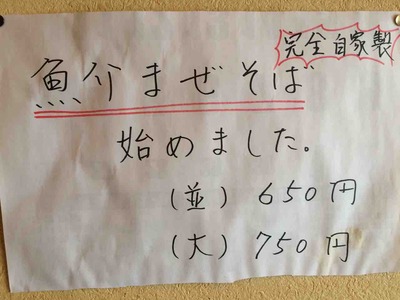 完全自家製
魚介まぜそば
始めました。
(並) 650円
(大) 750円